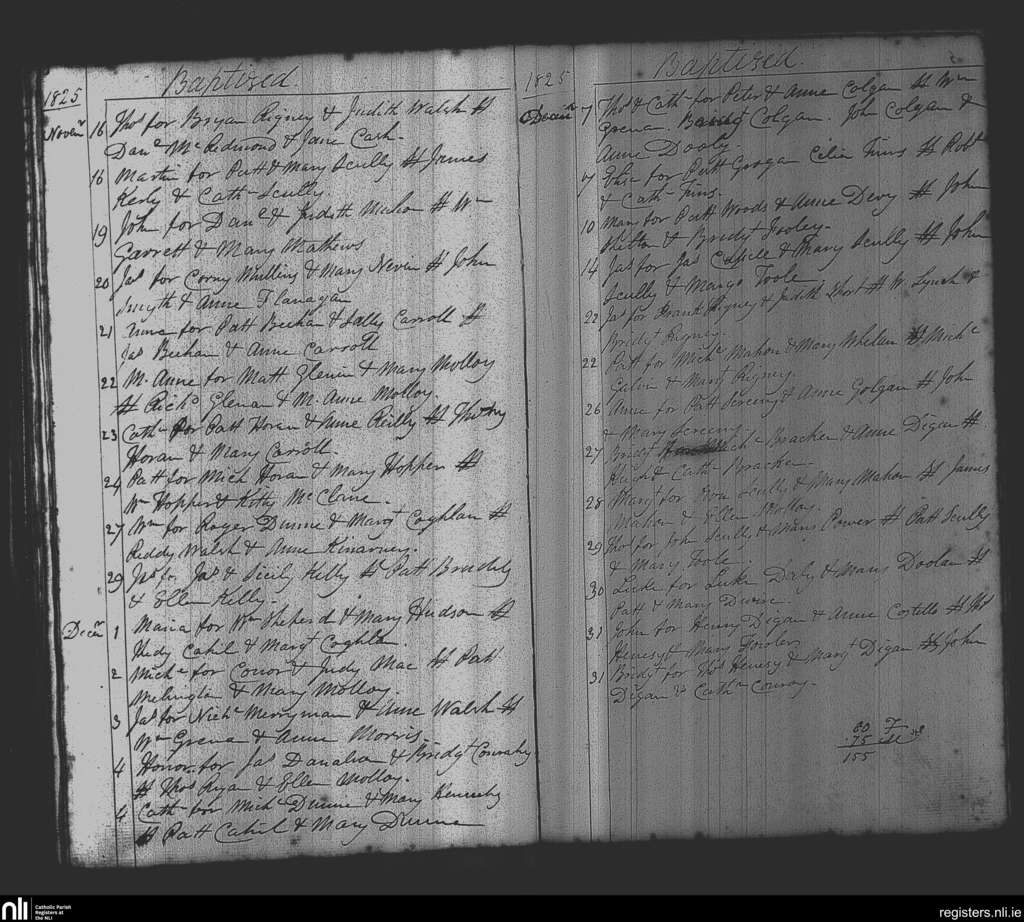 Baptized.
1825
Novemr 16 Thos for Bryan Rigney & Judith Walsh #
Danl McRedmond & Jane Cash.
16 Martin for Patt & Mary Scully # James
Kerly & Cath Scully.
19 John for Danl & Judith # Wm
Garrett & Mary Mathews
20 Jas for Corny Mullins & Mary Nevin # John
Smyth & Anne Flanagan
21 Anne for Patt Beehan & Sally Carroll #
Jas Beehan & Anne Carroll
22 M. Anne for Matt Glenin & Mary Molloy
# Richd Glenan & M. Anne Molloy.
23 Cath for Patt Horan & Anne Reilly #
Horan & Mary Carroll.
24 Patt for Mich Horan & Mary Hopper #
Wm Hopper & Kitty McClane.
27 Wm for Roger Dunne & Margt Coghlan #
Reddy Walsh & Anne Kinarney.
29 Jas for Jas & Sicily Kelly # Patt
& Ellen Kelly.
Decemr 1 Maria for Wm Sheperd & Mary Hudson #
Thedy Cahil & Margt Coghla
2 Miche for Conor & Judy Mac # Patt
& Mary Molloy.
3 Jas for Niche Merryman & Anne Walsh #
Wm Grena & Anne Morris.
4 Honor for Jas & Bridgt
# Thos Ryan & Ellen Molloy.
4 Cath for Miche Dunne & Mary Kennedy
# Patt Cahil & Mary Dunne
Baptized.
1825
Decemr 7 Thos & Cath for Peter & Anne Colgan # Wm
Grena. Colgan. John Colgan &
Anne Dooly.
7 for Patt Grogan Celia Fins # Robt
& Cath Fins.
10 Mary for Patt Woods & Anne Devy # John
& Bridgt
14 Jas for Jas & Mary Scully # John
Scully & Margt Toole
22 Jas for Frank Rigney & Judith Short # W. Lynch &
Bridgt Rigney.
22 Patt for Miche Mahon & Mary Whelan # Miche
Galvin & Margt Rigney.
26 Anne for Patt & Anne Colgan # John
& Mary
27 Bridgt Miche Bracken & Anne Digan #
Hugh & Cath Bracken.
28 Margt for Scully & Mary Mahon # James
Mahon & Ellen Molloy.
29 Thos for John Scully & Mary Power # Patt Scully
& Mary Toole.
30 Luke for Luke Daly & Mary Doolan #
Patt & Mary
31 John for Henry Degan & Anne Costello # Thos
Henesy & Mary Fowler
31 Bridgt for Thos Henesy & Margt Digan # John
Digan & Cathn Conroy.
80 F
75
155
nli
Catholic Parish
Registers at
the NLI
registers.nli.ie